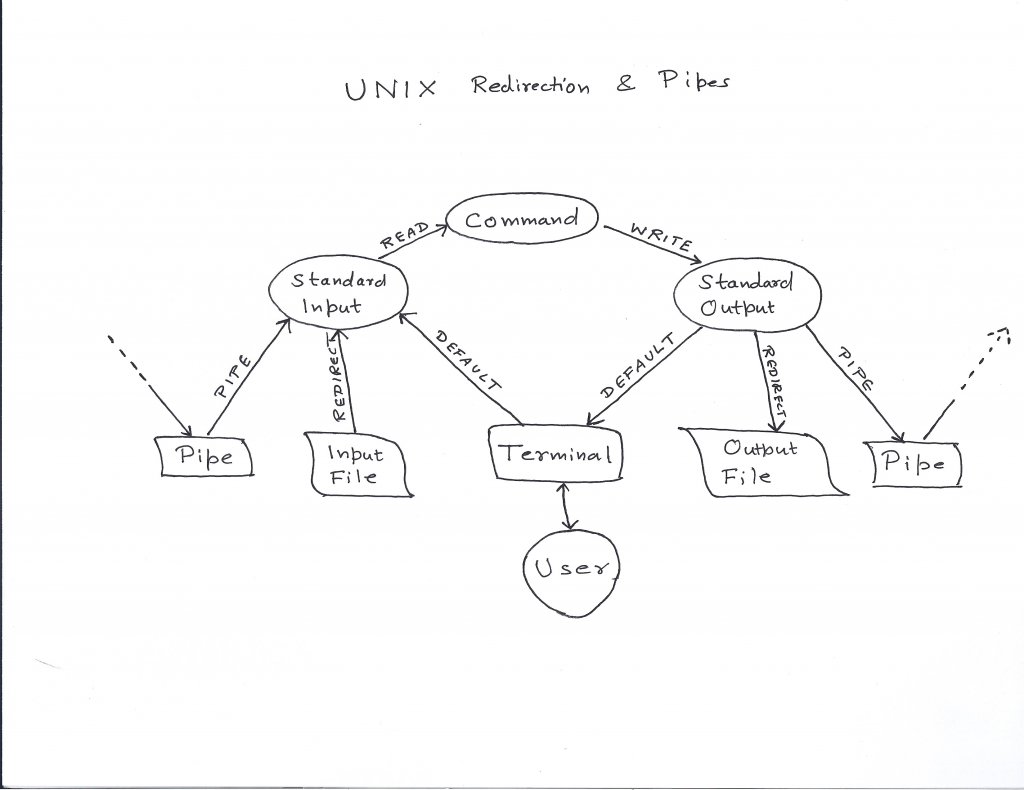 UNIX Redirection & Pipes
Command
READ
WRITE
Standard
Input
Standard
Output
PIPE
REDIRECT
DEFAULT
DEFAULT
REDIRECT
PIPE
Pipe
Input
File
Terminal
Output
File
Pipe
User